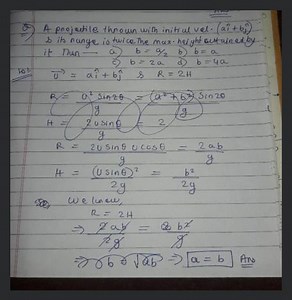 Q A projectile thrown with initial vel. (aî + bĵ)
& its range is twice the max. height attained by
it then — a) b = a/2 b) b = a
c) b = 2a d) b = 4a
Sol: u⃗ = aî + bĵ & R = 2H
R = u² Sin2θ / g = (a² + b²) Sin2θ / g
H = 2 u Sinθ / g = 2
R = 2 U Sinθ U Cosθ / g = 2ab / g
H = (U Sinθ)² / 2g = b² / 2g
We know,
R = 2H
⇒ 2ab / g = 2 b² / 2g
⇒ a = b Ans